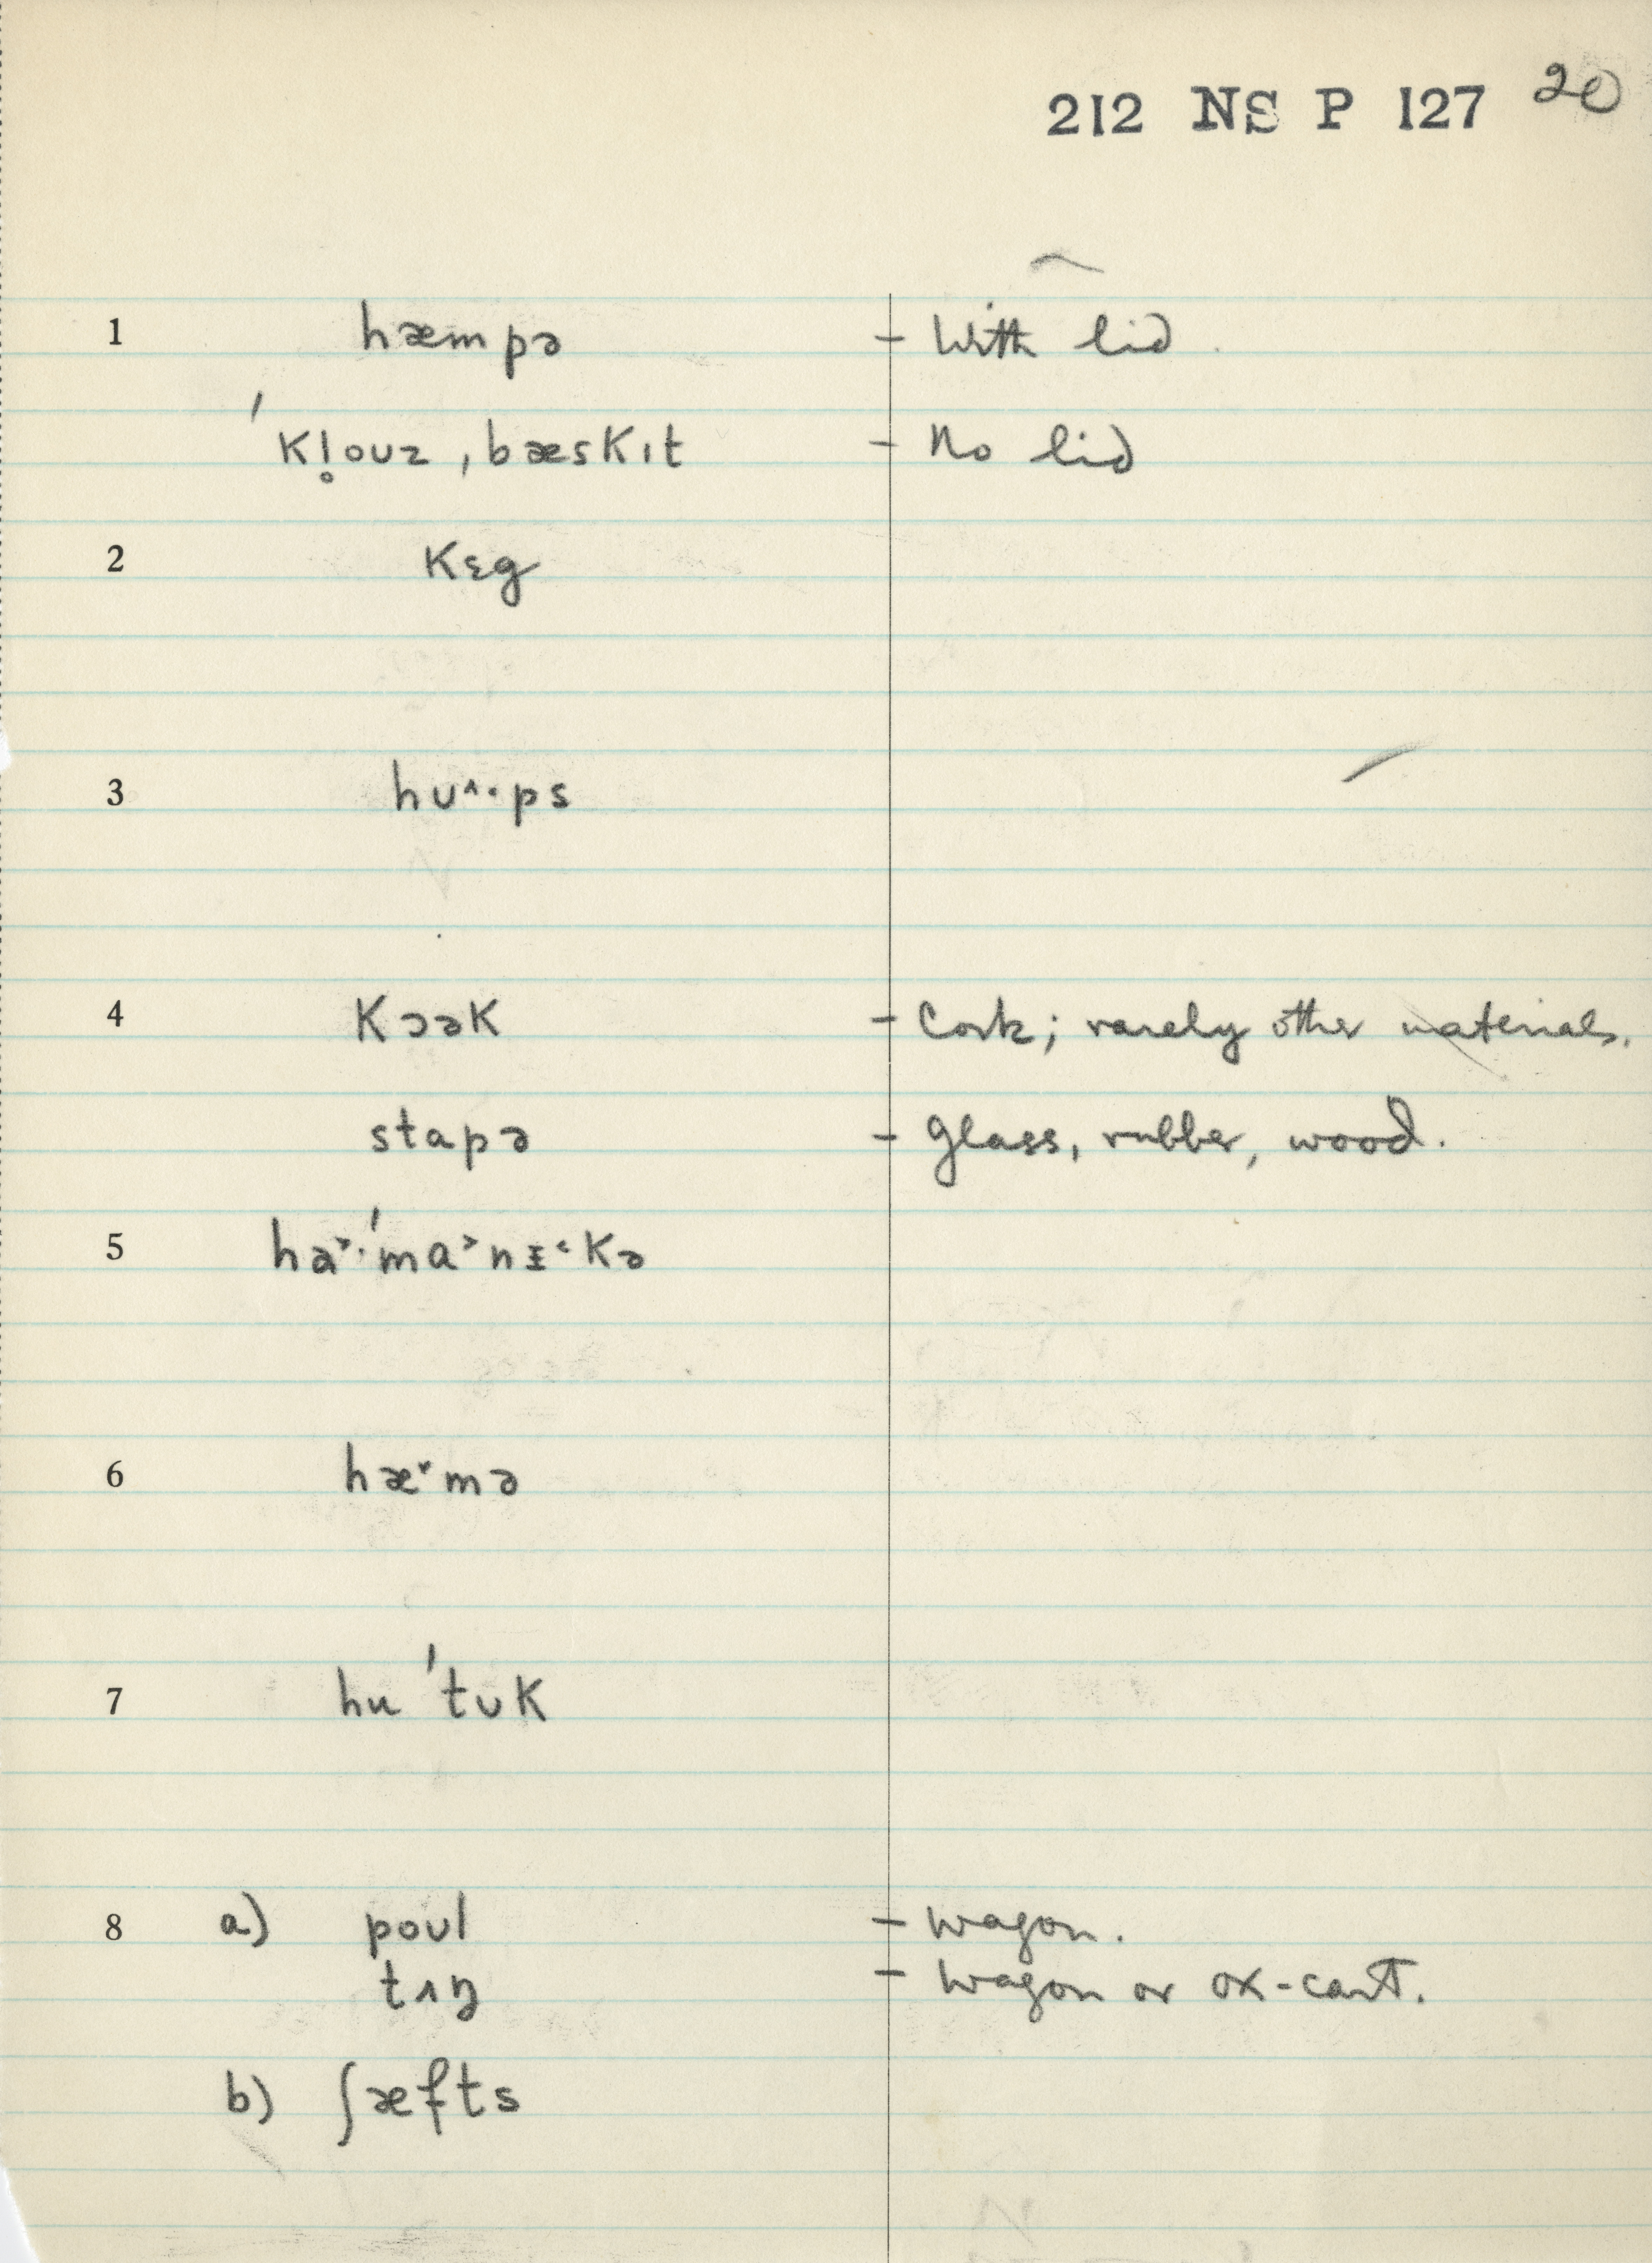 212 NS P 127 20
1 hæmpə - With lid.
ˈkl̥ouz ˌbæskɪt - No lid
2 kɛg
3 hu^·ps
4 kɔək - Cork; rarely other materials.
stapə - glass, rubber, wood.
5 ha˃·ˈma˃nɪ˂kə
6 hæ˅mə
7 hu ˈtuk
8 a) poul - wagon.
tʌŋ - wagon or ox-cart.
b) ʃæfts